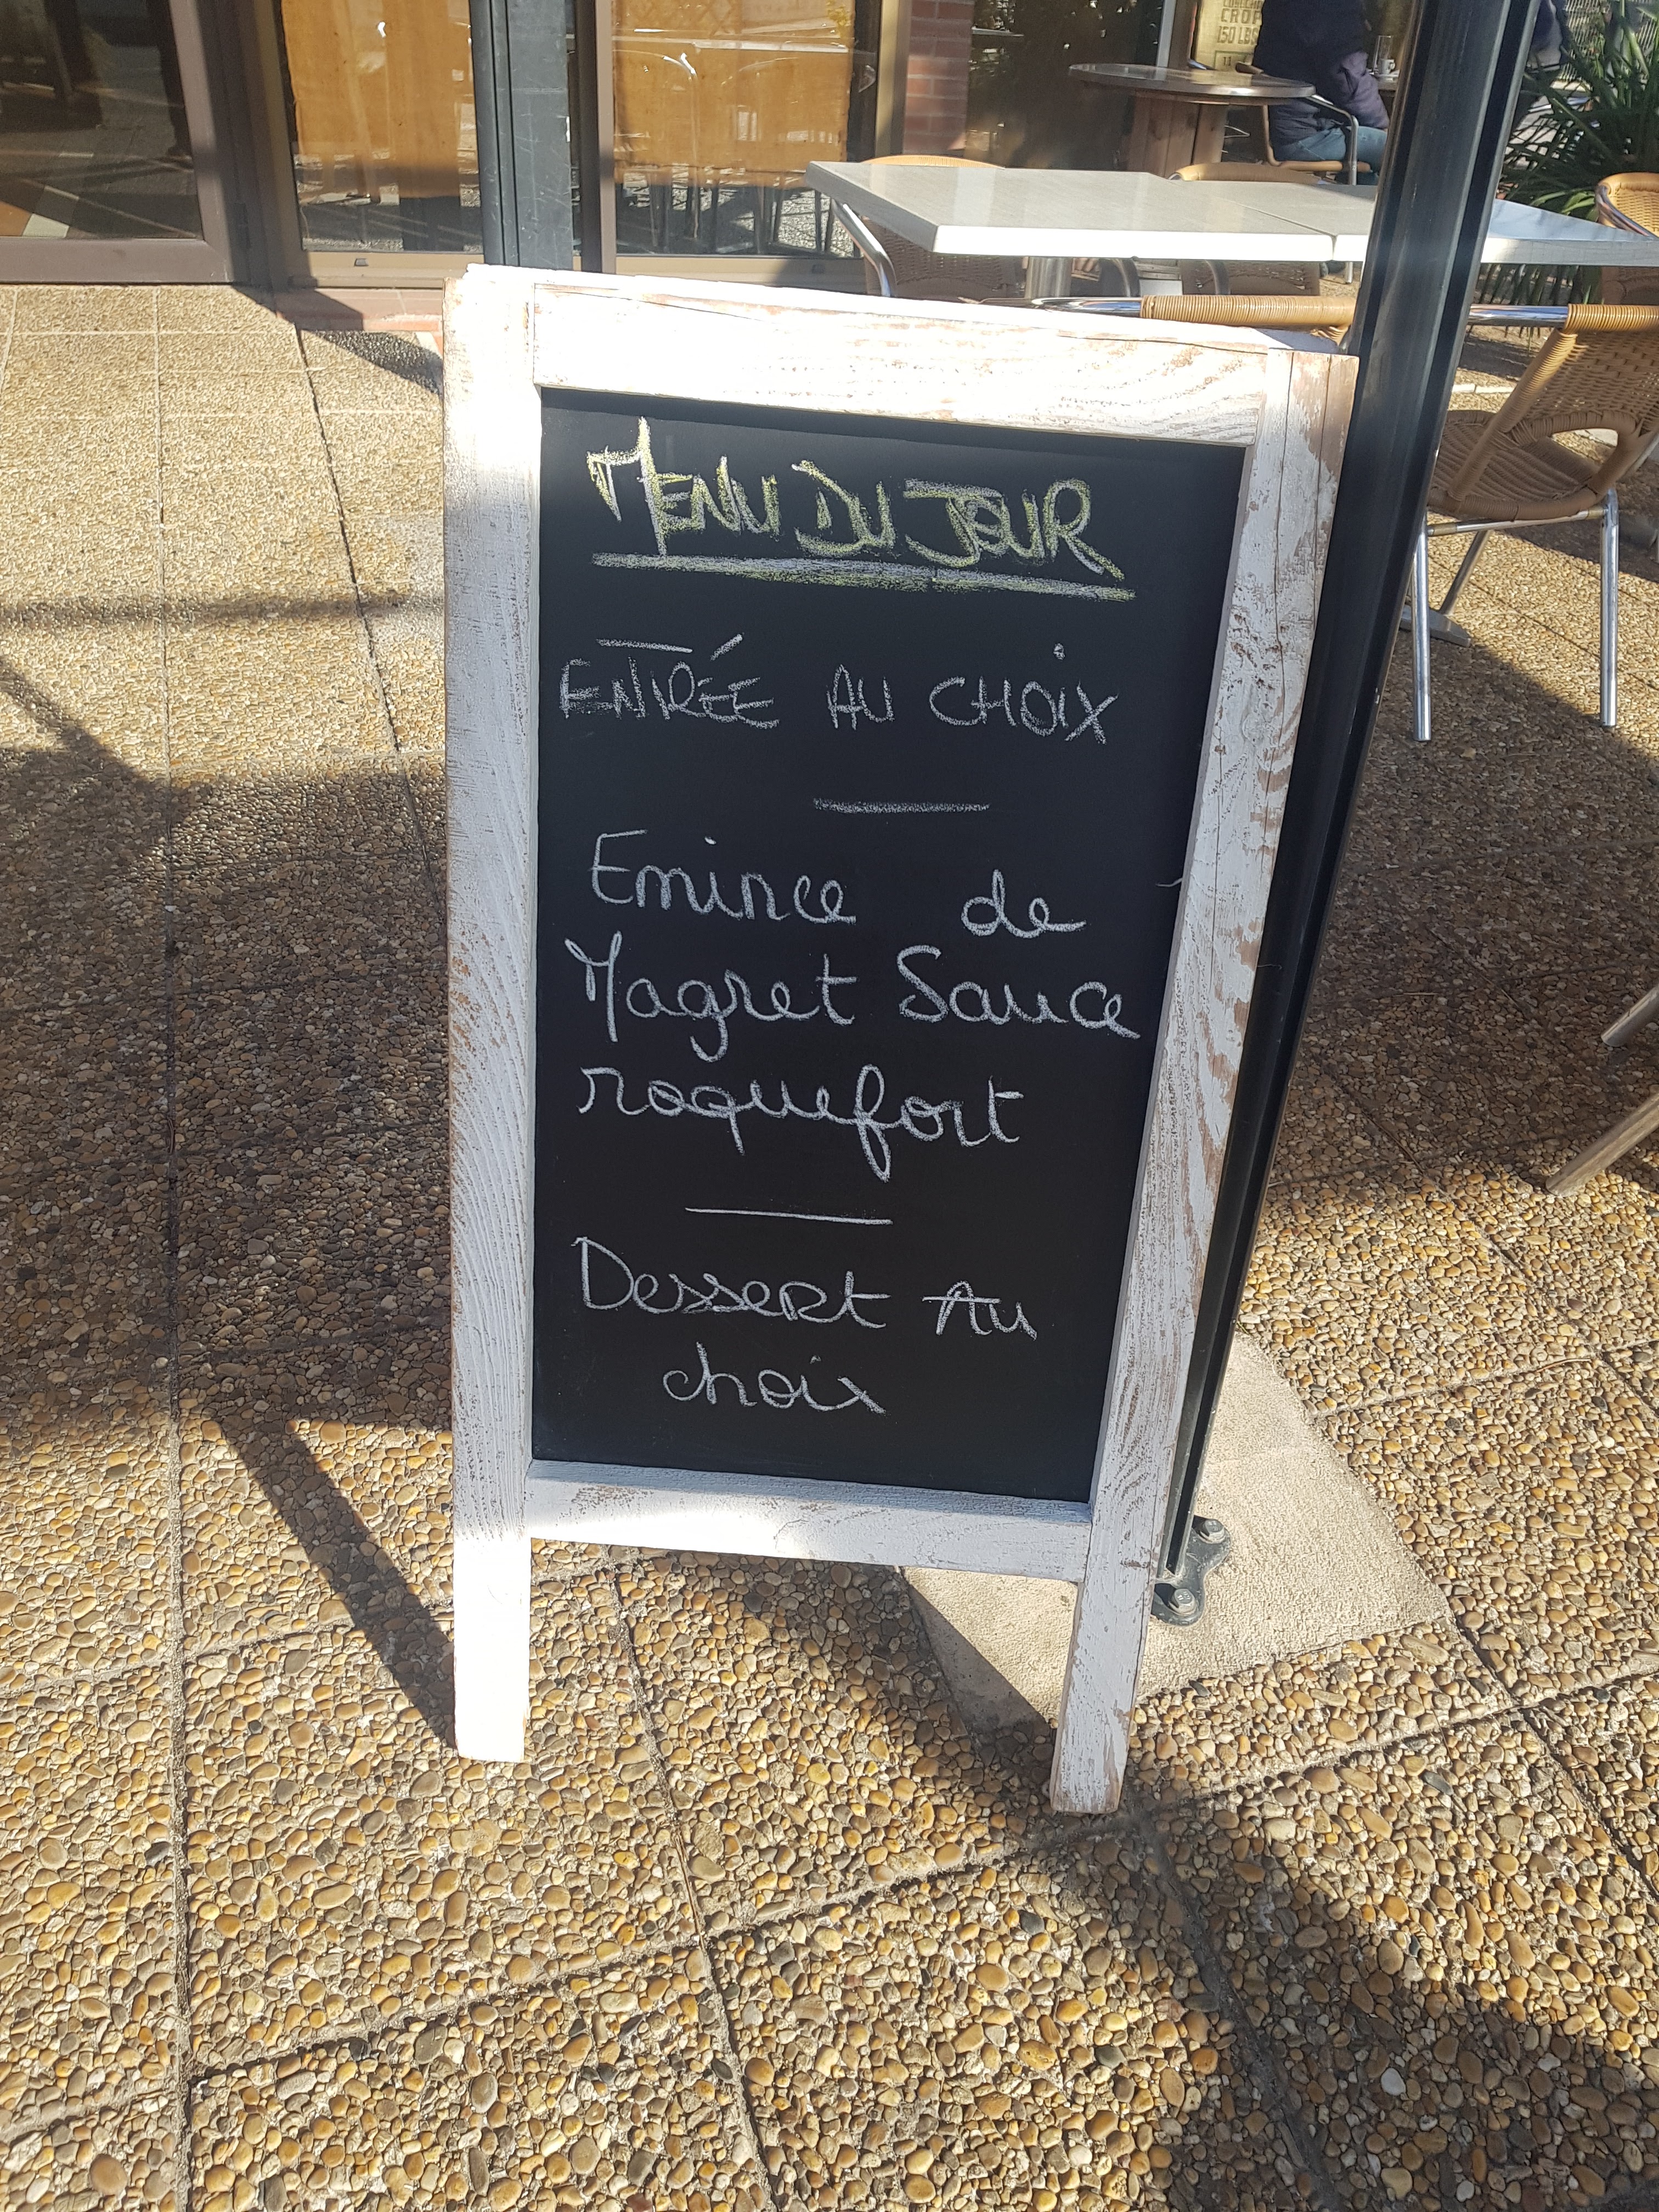 CROP
150 LBS
MENU DU JOUR
ENTRÉE AU CHOIX
Emince de
Magret Sauce
roquefort
Dessert Au
choix